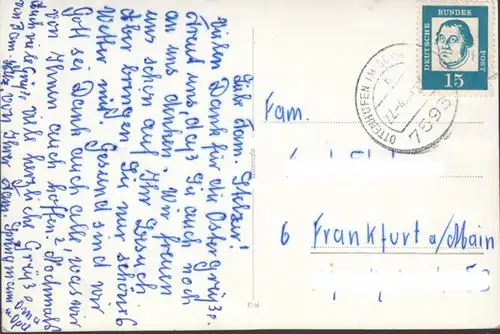 Liebe Fam.
Vielen Dank für die Ostergrüße.
Freut uns, daß Sie auch noch
an uns denken. Wir freuen
uns schon auf Ihr Besuch
aber bringen Sie nur schönes
Wetter mit. Gesund sind wir
Gott sei Dank auch alle was wir
von Ihnen auch hoffen. Nochmals
viele herzliche Grüße
von Ihrer Fam.
DEUTSCHE BUNDES POST
15
OTTENHÖFEN IM
7593
Fam.
6 Frankfurt a/Main